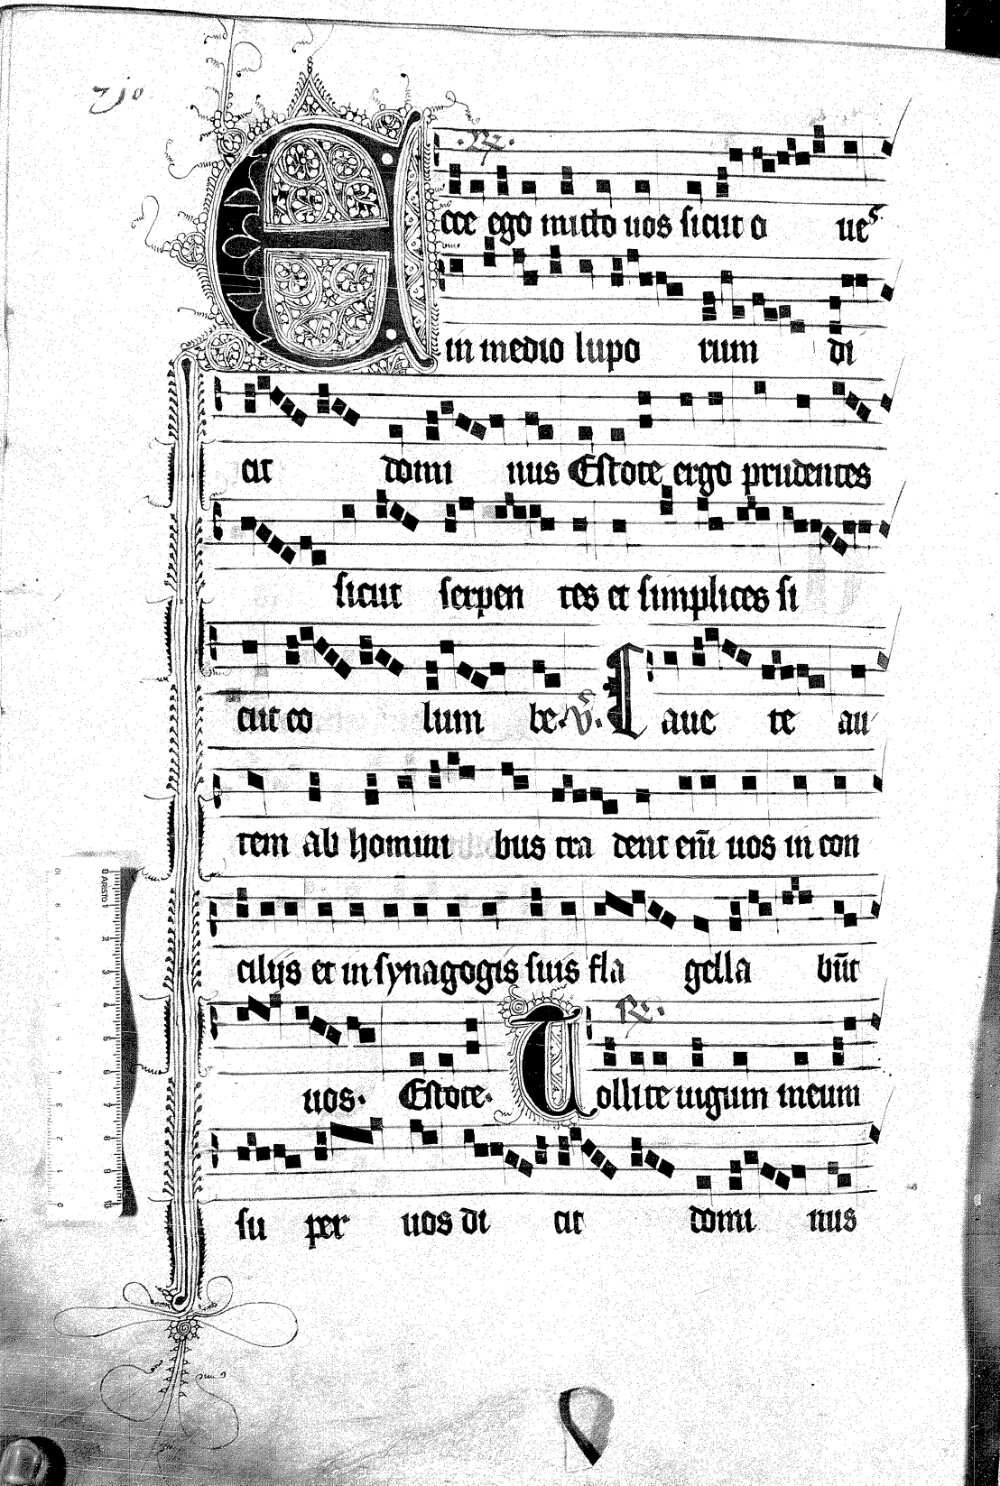 ·R·
Ecce ego mitto uos sicut o ues
in medio lupo rum di
cit domi nus Estote ergo prudentes
sicut serpen tes et simplices si
cut co lum be. V. Caue te au
tem ab homini bus tra dent eni͂ uos in con
cilijs et in synagogis suis fla gella bu͂t
R.
uos. Estote. Tollite iugum meum
su per uos di cit domi nus